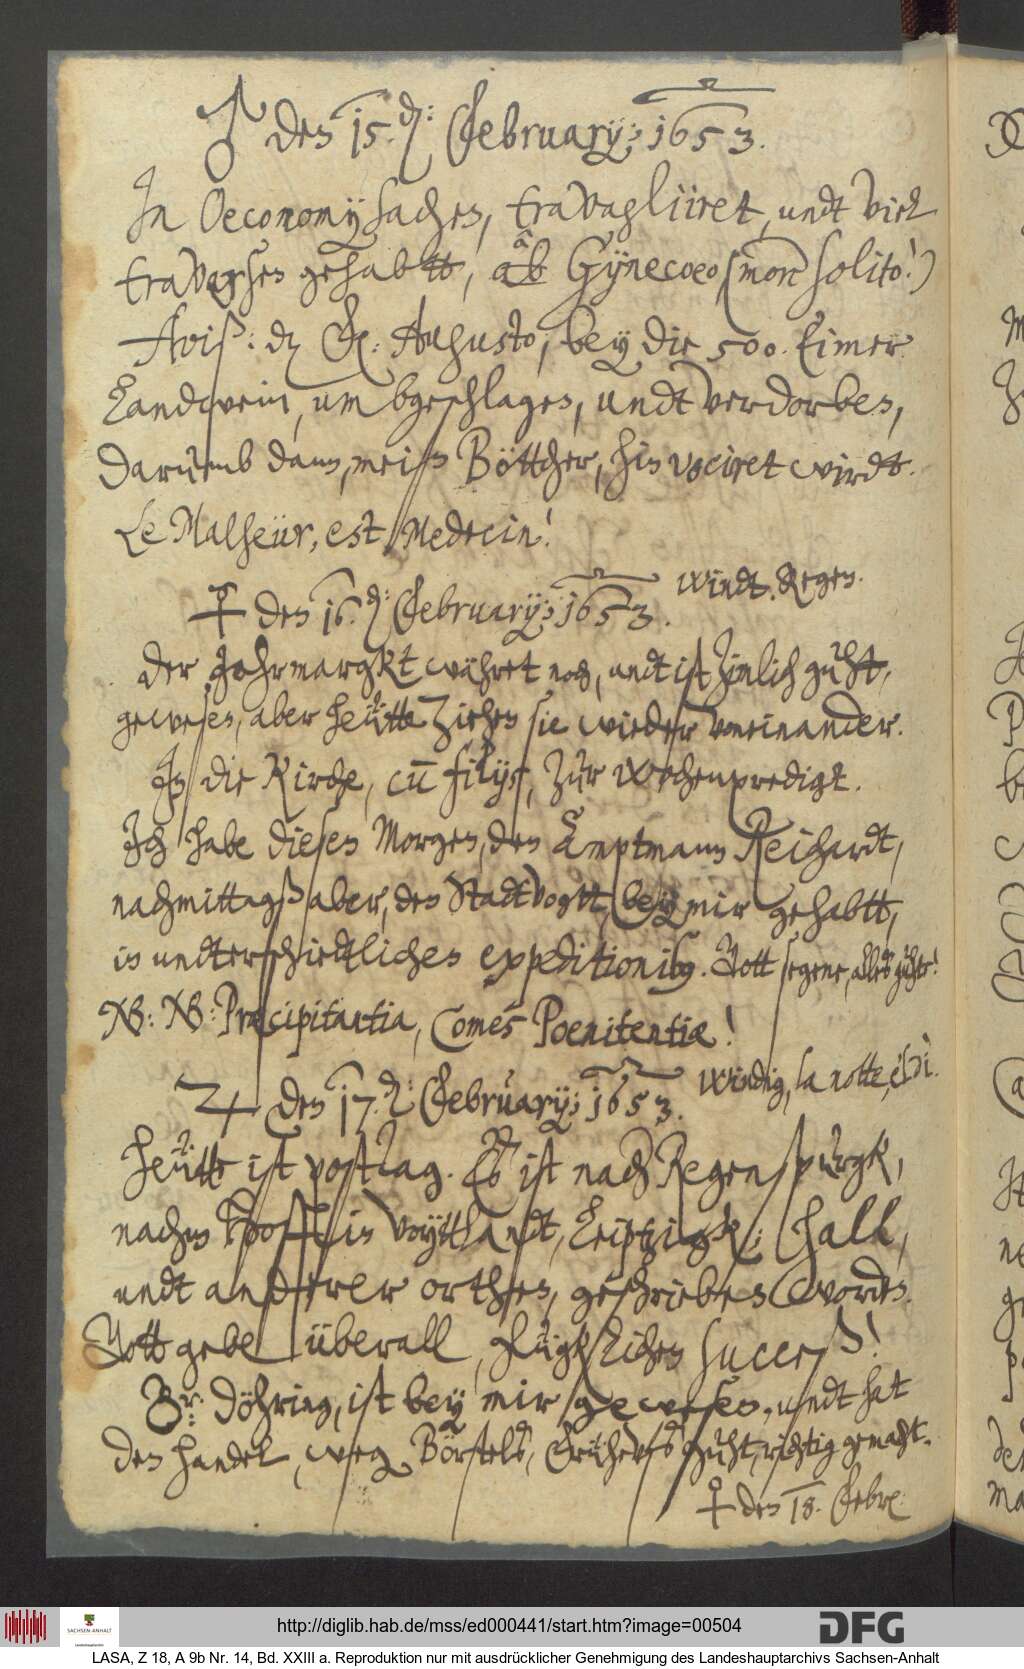 ♂ den 15. d: February: 1653.
In Oeconomÿsachen, travagliiret, undt viel
traversen gehabtt, ab Gÿnecoeo, (more solito!)
Aviß: das Augusto, bey die 500. Eimer
Landwein, umbgeschlagen, undt verdorben,
darumb dann, mein Böttcher, hin vociret wirdt.
Le Malheür, est Medecin!
☿ den 16. d: February: 1653. Windt. Regen.
Der Jahrmargkt währet noch, undt ist zimlich guht,
gewesen, aber heütte ziehen sie wieder voneinander.
In die Kirche, cum filijs, zur wochenpredigt.
Ich habe diesen Morgen, den Amptmann Reichardt,
nachmittagß aber, den Stadtvogtt, bey mir gehabtt,
in undterschiedtlichen expeditionibus. Gott segene, alles guhte!
NB: NB: Præcipitantia, Comes Poenitentiæ!
♃ den 17. d: February: 1653. Windig, la notte, e'l dì.
Heütte ist posttag. Es ist nach Regenspurgk,
nachm hoff, in Voyttlandt, Leiptzigk, Hall,
undt anderer orthen, geschrieben worden.
Gott gebe überall, glügklichen succeß!
Br: Döhring, ist bey mir gewesen, undt hat
den handel, weg. Börstels, guht, richtig gemacht.
♀ den 18. Febr.
http://diglib.hab.de/mss/ed000441/start.htm?image=00504
SACHSEN-ANHALT
Landeshauptarchiv
DFG
LASA, Z 18, A 9b Nr. 14, Bd. XXIII a. Reproduktion nur mit ausdrücklicher Genehmigung des Landeshauptarchivs Sachsen-Anhalt